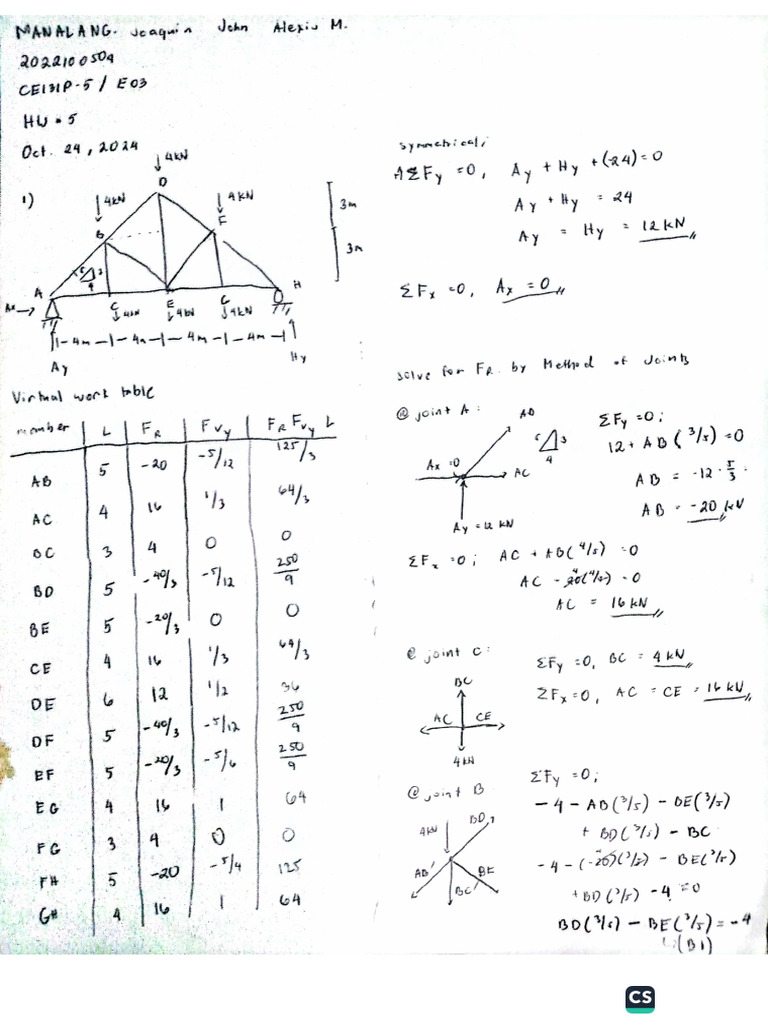 MANALANG. Joaquin John Alexis M.
2022100504
CE131P-5 / E03
HW #5
Oct. 24, 2024
1)
4kN
D
4kN
4kN
B
F
3m
3m
5 3
4
A
H
Ax →
C
E
G
4kN
4kN
4kN
4m
4m
4m
4m
Ay
Hy
Virtual work table
member | L | FR | FVy | FR FVy L
AB 5 -20 -5/12 125/3
AC 4 16 1/3 64/3
BC 3 4 0 0
BD 5 -40/3 -5/12 250/9
BE 5 -20/3 0 0
CE 4 16 1/3 64/3
DE 6 12 1/2 36
DF 5 -40/3 -5/12 250/9
EF 5 -20/3 -5/6 250/9
EG 4 16 1 64
FG 3 4 0 0
FH 5 -20 -5/4 125
GH 4 16 1 64
symmetrical;
ΣFy = 0, Ay + Hy + (-24) = 0
Ay + Hy = 24
Ay = Hy = 12 kN
ΣFx = 0, Ax = 0
solve for FR by Method of Joints
@ joint A:
AB
5 3
4
Ax = 0
AC
Ay = 12 kN
ΣFy = 0;
12 + AB(3/5) = 0
AB = -12 · 5/3
AB = -20 kN
ΣFx = 0; AC + AB(4/5) = 0
AC - 20(4/5) = 0
AC = 16 kN
@ joint C:
BC
AC CE
4kN
ΣFy = 0, BC = 4 kN
ΣFx = 0, AC = CE = 16 kN
@ joint B
4kN
BD
AB
BE
BC
ΣFy = 0;
- 4 - AB(3/5) - BE(3/5)
+ BD(3/5) - BC
- 4 - (-20)(3/5) - BE(3/5)
+ BD(3/5) - 4 = 0
BD(3/5) - BE(3/5) = -4
(B1)
CS